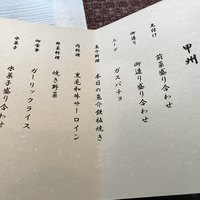 甲州
先付け
前菜盛り合わせ
御造り
御造り盛り合わせ
スープ
ガスパチョ
魚介料理
本日の魚介鉄板焼き
肉料理
黒毛和牛サーロイン
野菜料理
焼き野菜
御食事
ガーリックライス
水菓子
水菓子盛り合わせ